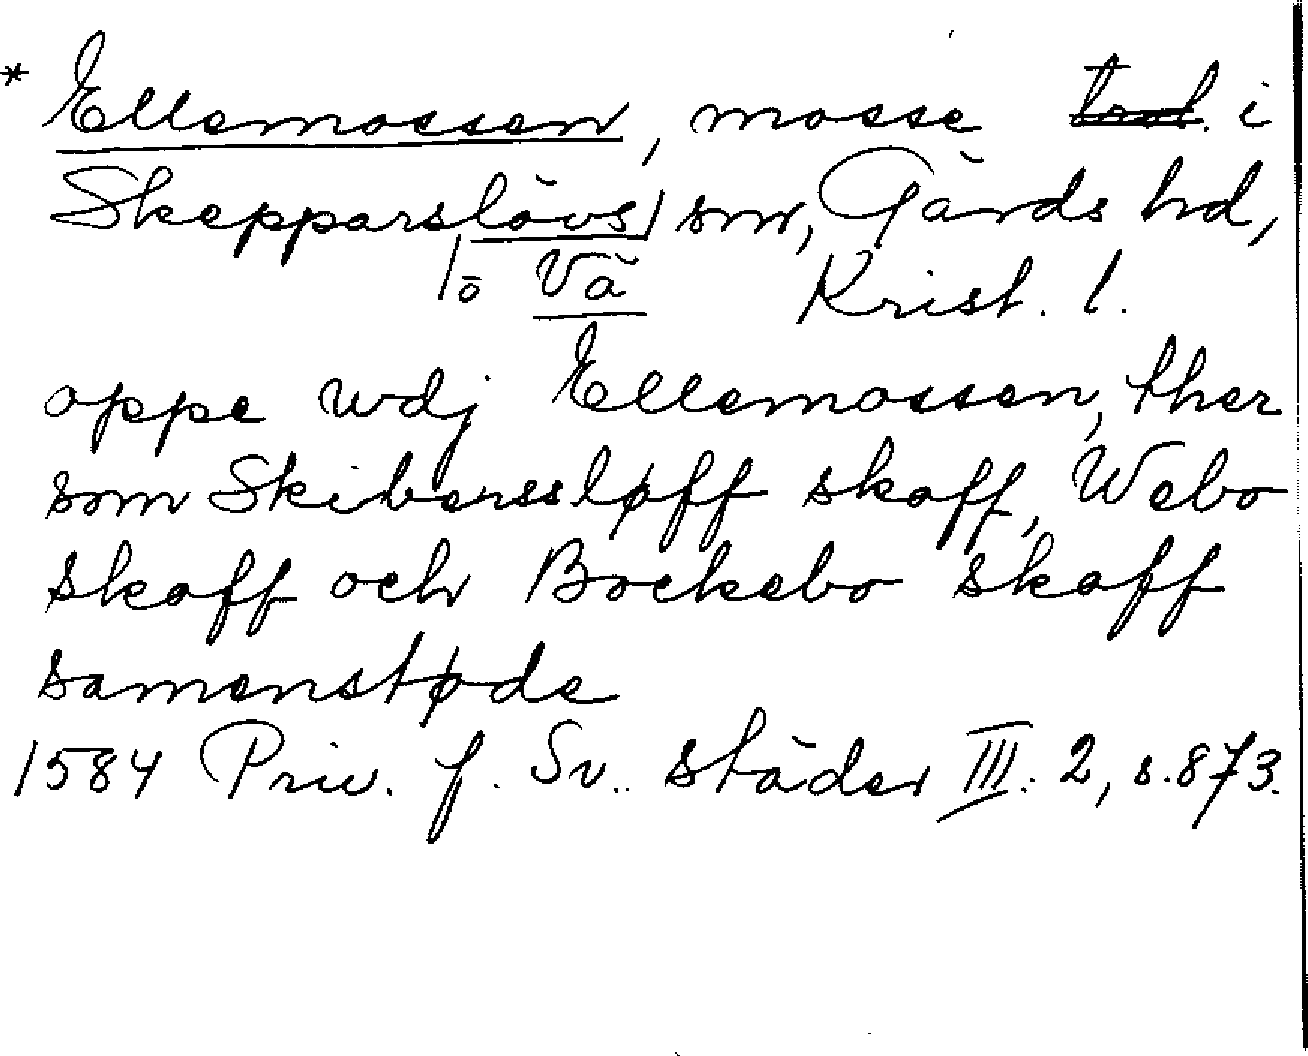 * Ellemossen, mosse trol. i
Skepparslövs sn, Gärds hd,
/o Vä Krist. l.
oppe wdj Ellemossen, ther
som Skiberssløff skoff, Webo
skoff och Bockebo skoff
samenstøde
1584 Priv. f. Sv. städer III: 2, s. 873.